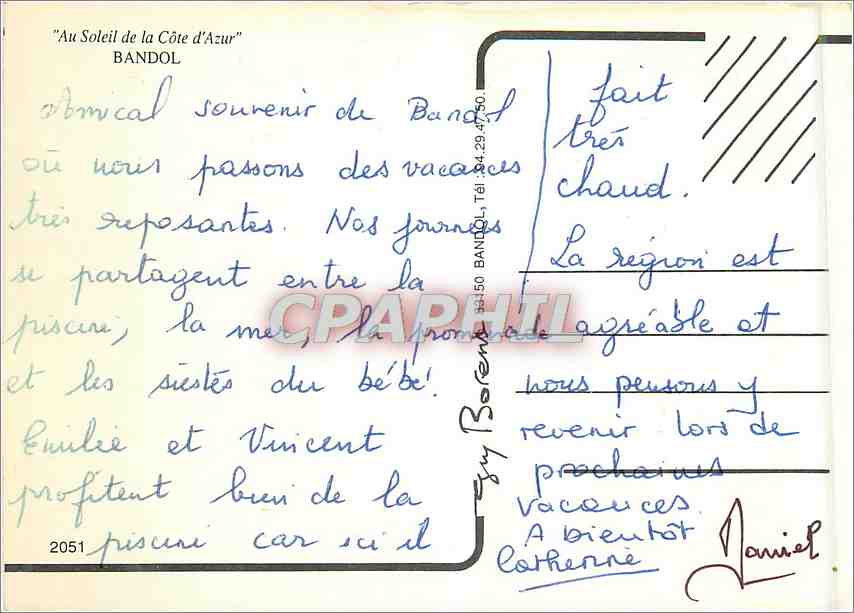 "Au Soleil de la Côte d'Azur"
BANDOL
Amical souvenir de Bandol
où nous passons des vacances
très reposantes. Nos journées
se partagent entre la
piscine, la mer, la promenade
et les siestes du bébé.
Emilie et Vincent
profitent bien de la
piscine car ici il
2051
Guy Borens 83150 BANDOL, Tél : 94.29.47.50.
CPAPHIL
fait
très
chaud.
La région est
agréable et
nous pensons y
revenir lors de
prochaines
vacances.
A bientôt
Catherine
Daniel